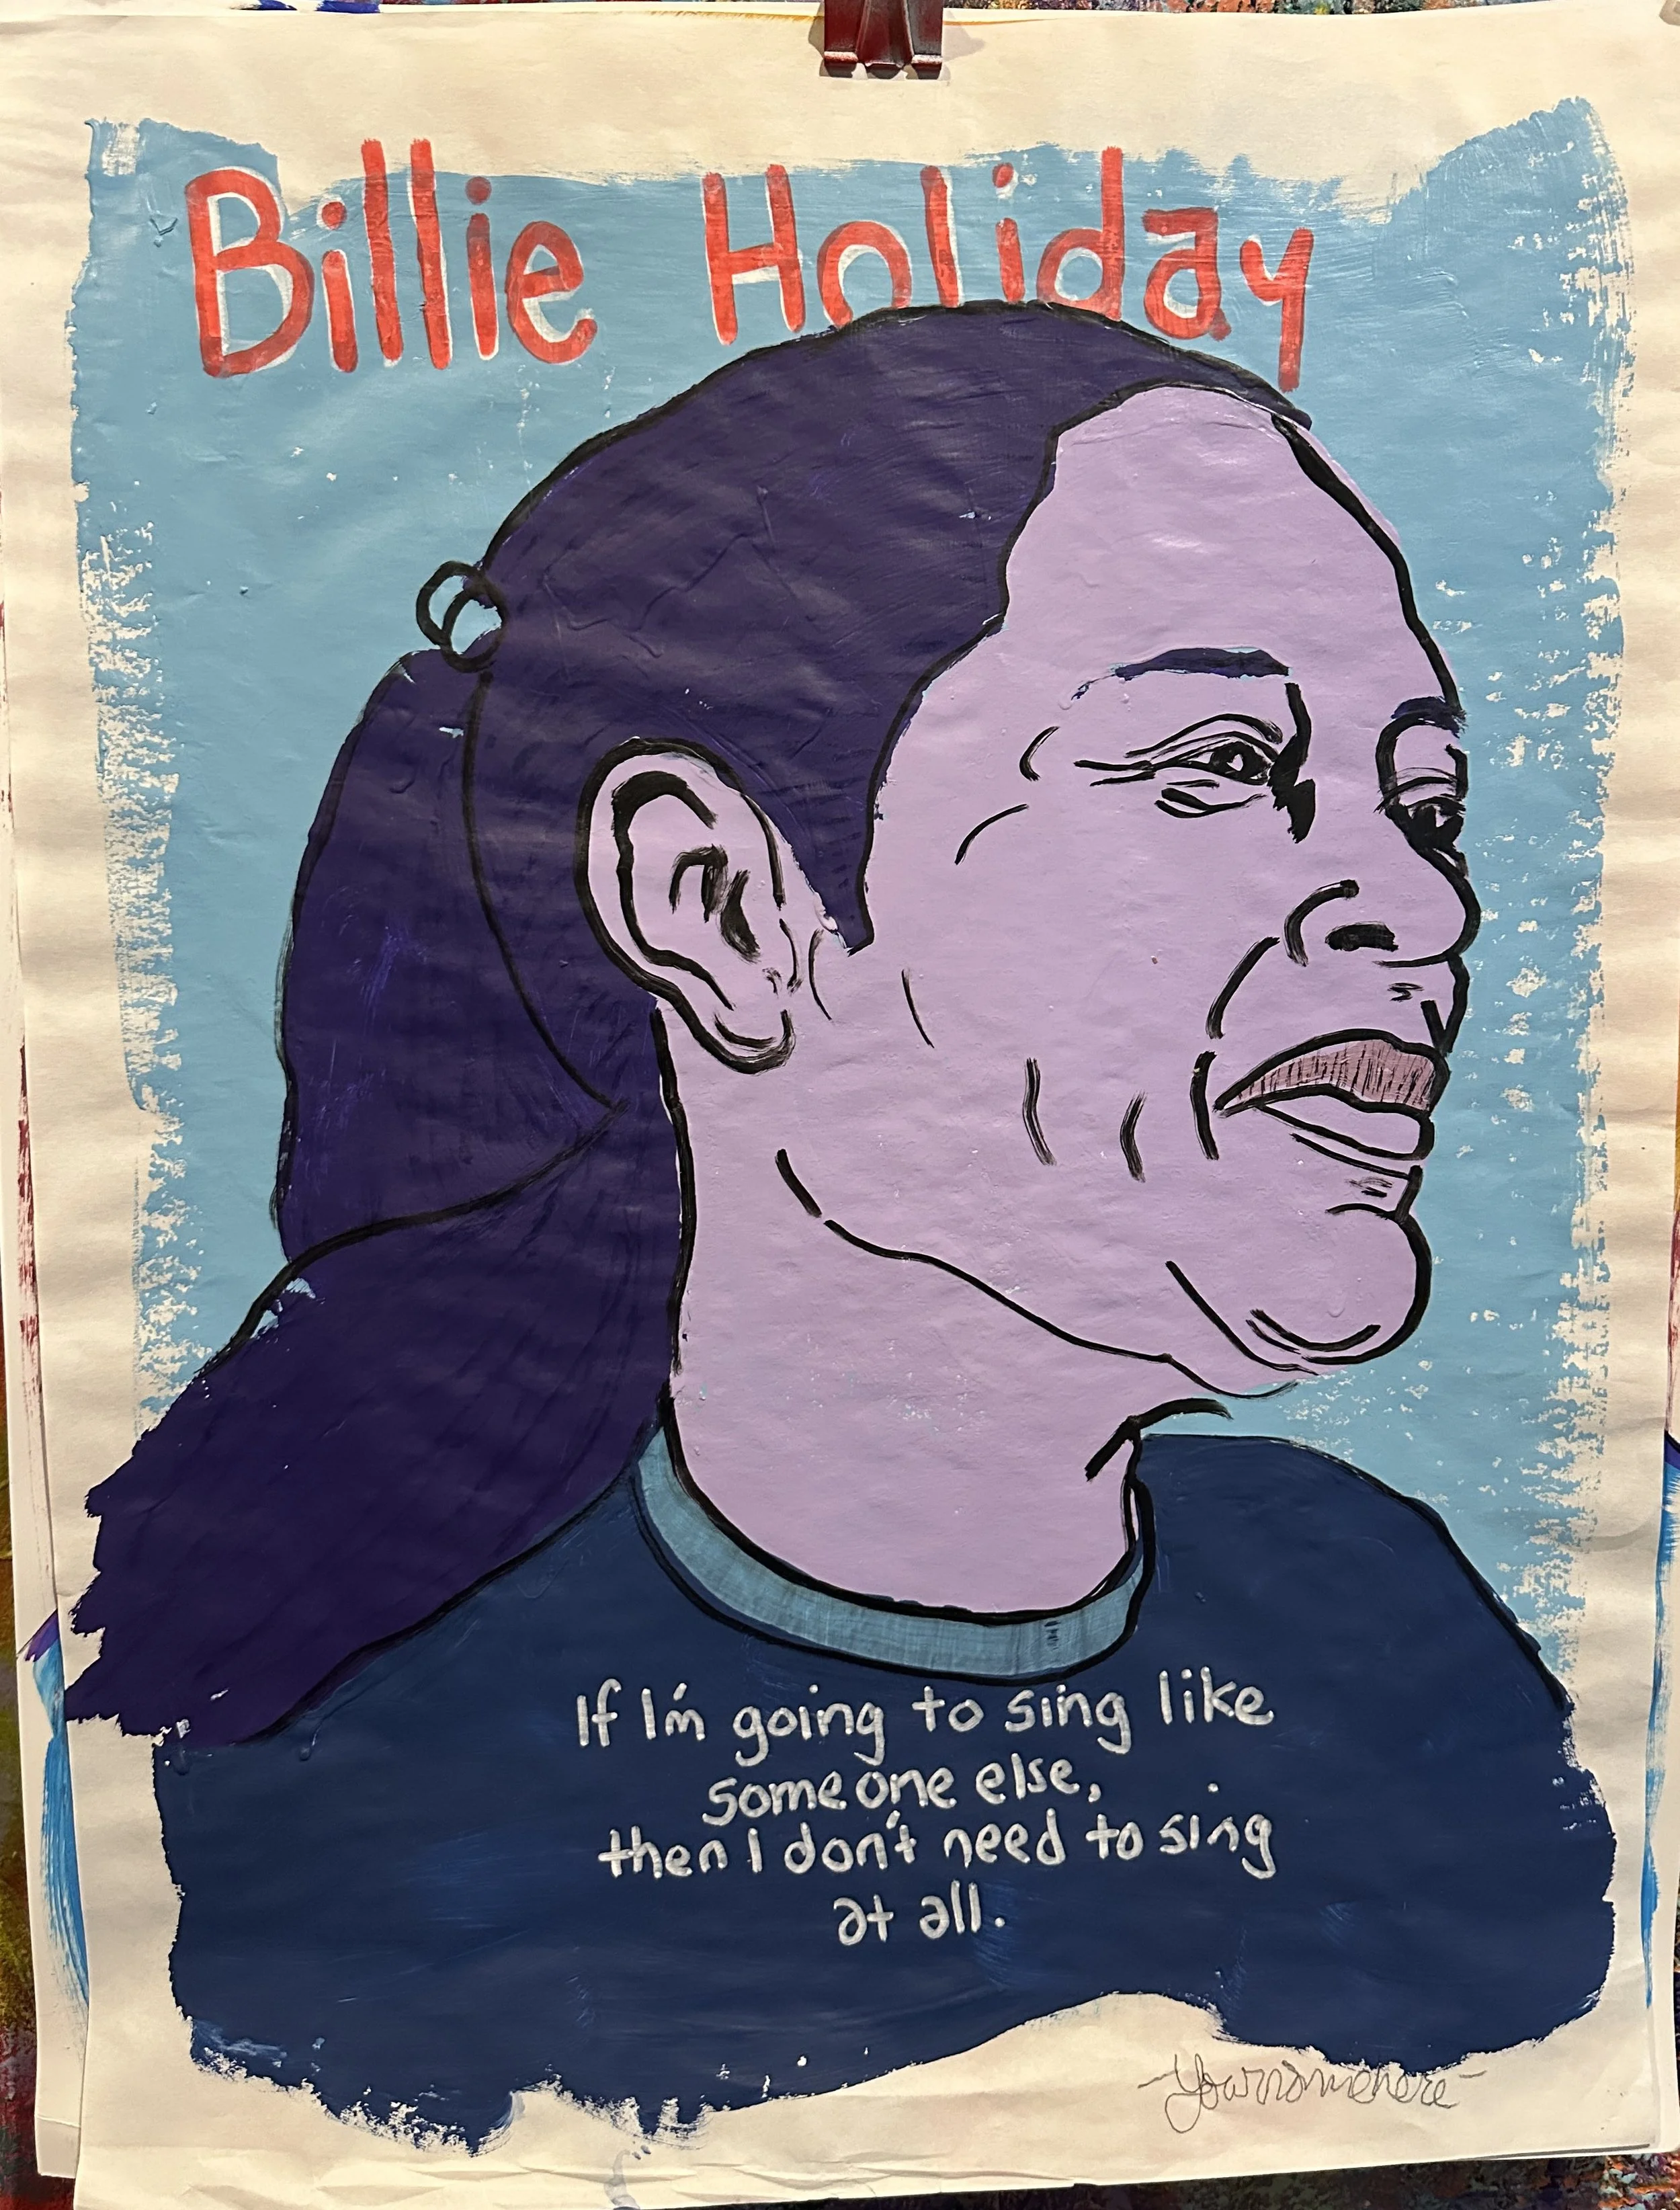 Billie Holiday
If I'm going to sing like
someone else,
then I don't need to sing
at all.
-Yournamehere-